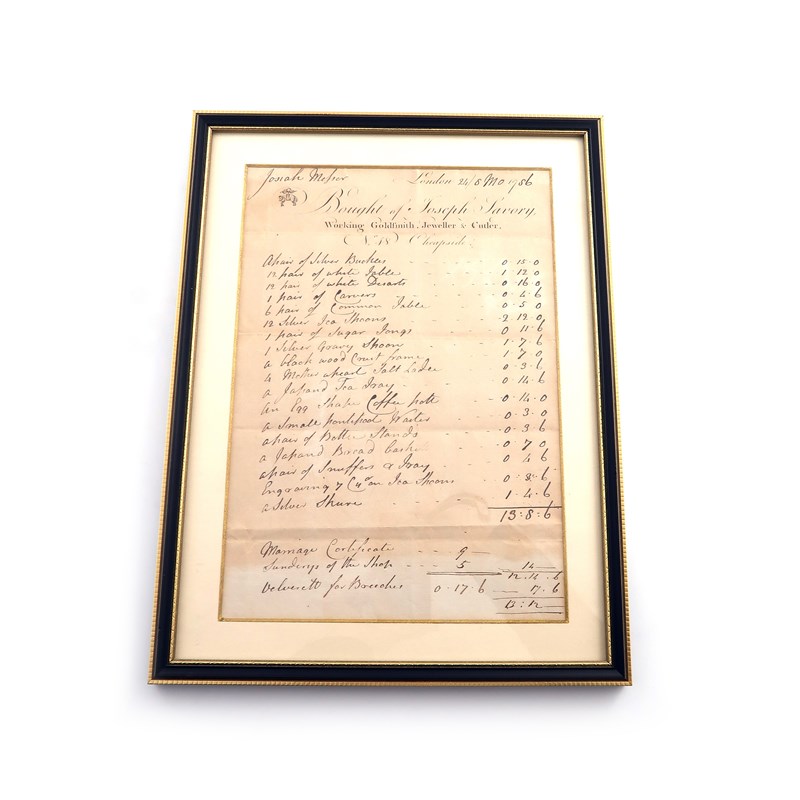 Josiah Messer London 24/8 Mo 1786
Bought of Joseph Savory,
Working Goldsmith, Jeweller & Cutler,
No. 48 Cheapside
A pair of Silver Buckles 0 · 15 · 0
12 pair of white Table 1 · 12 · 0
12 pair of white Desarts 0 · 16 · 0
1 pair of Carvers 0 · 4 · 6
6 pair of Common Table 0 · 5 · 0
12 Silver Tea Spoons 2 · 12 · 0
1 pair of Sugar Tongs 0 · 11 · 6
1 Silver Gravy Spoon 1 · 7 · 6
a black wood Cruet frame 1 · 7 · 0
a Mother a pearl Salt Ladle 0 · 3 · 6
a Japand Tea Tray 0 · 14 · 6
An Egg Shape Coffee pott 0 · 14 · 0
a Small Waiter 0 · 3 · 0
a pair of Bottle Stands 0 · 3 · 6
a Japand Bread Basket 0 · 7 · 0
a pair of Snuffers & Tray 0 · 4 · 6
Engraving 7 on Tea Spoons 0 · 8 · 6
a Silver 1 · 4 · 6
13 : 8 : 6
Marriage Certificate 9
Sundrys of the Shop 5 14
12 · 14 · 6
Velverett for Breeches 0 · 17 · 6 17 · 6
13 : 12